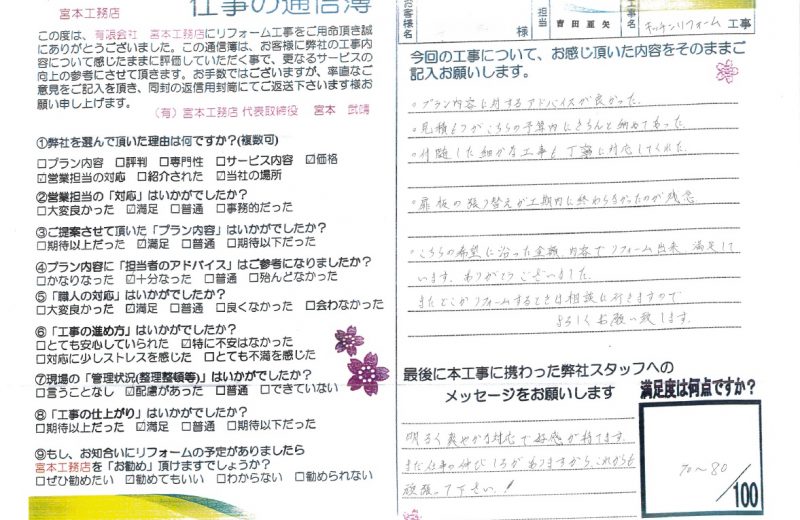 宮本工務店
仕事の通信簿
この度は、有限会社 宮本工務店にリフォーム工事をご用命頂き誠
にありがとうございました。この通信簿は、お客様に弊社の工事内
容について感じたままに評価していただく事で、更なるサービスの
向上の参考にさせて頂きます。お手数ではございますが、率直なご
意見をご記入を頂き、同封の返信用封筒にてご返送下さいます様お
願い申し上げます。
(有)宮本工務店 代表取締役 宮本 武晴
①弊社を選んで頂いた理由は何ですか?(複数可)
□プラン内容 □評判 □専門性 □サービス内容 ☑価格
☑営業担当の対応 □紹介された ☑当社の場所
②営業担当の「対応」はいかがでしたか?
□大変良かった ☑満足 □普通 □事務的だった
③ご提案させて頂いた「プラン内容」はいかがでしたか?
□期待以上だった ☑満足 □普通 □期待以下だった
④プラン内容に「担当者のアドバイス」はご参考になりましたか?
□かなりなった ☑十分なった □普通 □殆んどなかった
⑤「職人の対応」はいかがでしたか?
□大変良かった ☑満足 □普通 □良くなかった □会わなかった
⑥「工事の進め方」はいかがでしたか?
□とても安心していられた ☑特に不安はなかった
□対応に少しストレスを感じた □とても不満を感じた
⑦現場の「管理状況(整理整頓等)」はいかがでしたか?
□言うことなし ☑配慮があった □普通 □できていない
⑧「工事の仕上がり」はいかがでしたか?
□期待以上だった ☑満足 □普通 □期待以下だった
⑨もし、お知合いにリフォームの予定がありましたら
宮本工務店を「お勧め」頂けますでしょうか?
□ぜひ勧めたい ☑勧めてもいい □わからない □勧められない
お客様名 様 担当 吉田亜矢 工事名 キッチンリフォーム 工事
今回の工事について、お感じ頂いた内容をそのままご
記入お願いします。
○プラン内容に対するアドバイスが良かった。
○見積もりがこちらの予算内にきちんと納めてあった。
○付随した細かな工事も丁寧に対応してくれた。
○扉板の張り替えが工期内に終わらなかったのが残念
○こちらの希望に沿った金額、内容でリフォーム出来、満足して
います。ありがとうございました。
またどこかリフォームするときは相談に行きますので
よろしくお願い致します。
最後に本工事に携わった弊社スタッフへの
メッセージをお願いします
明るく爽やかな対応で好感が持てます。
また仕事の伸びしろがありますから、これからも
頑張って下さい!
満足度は何点ですか?
70〜80
/100